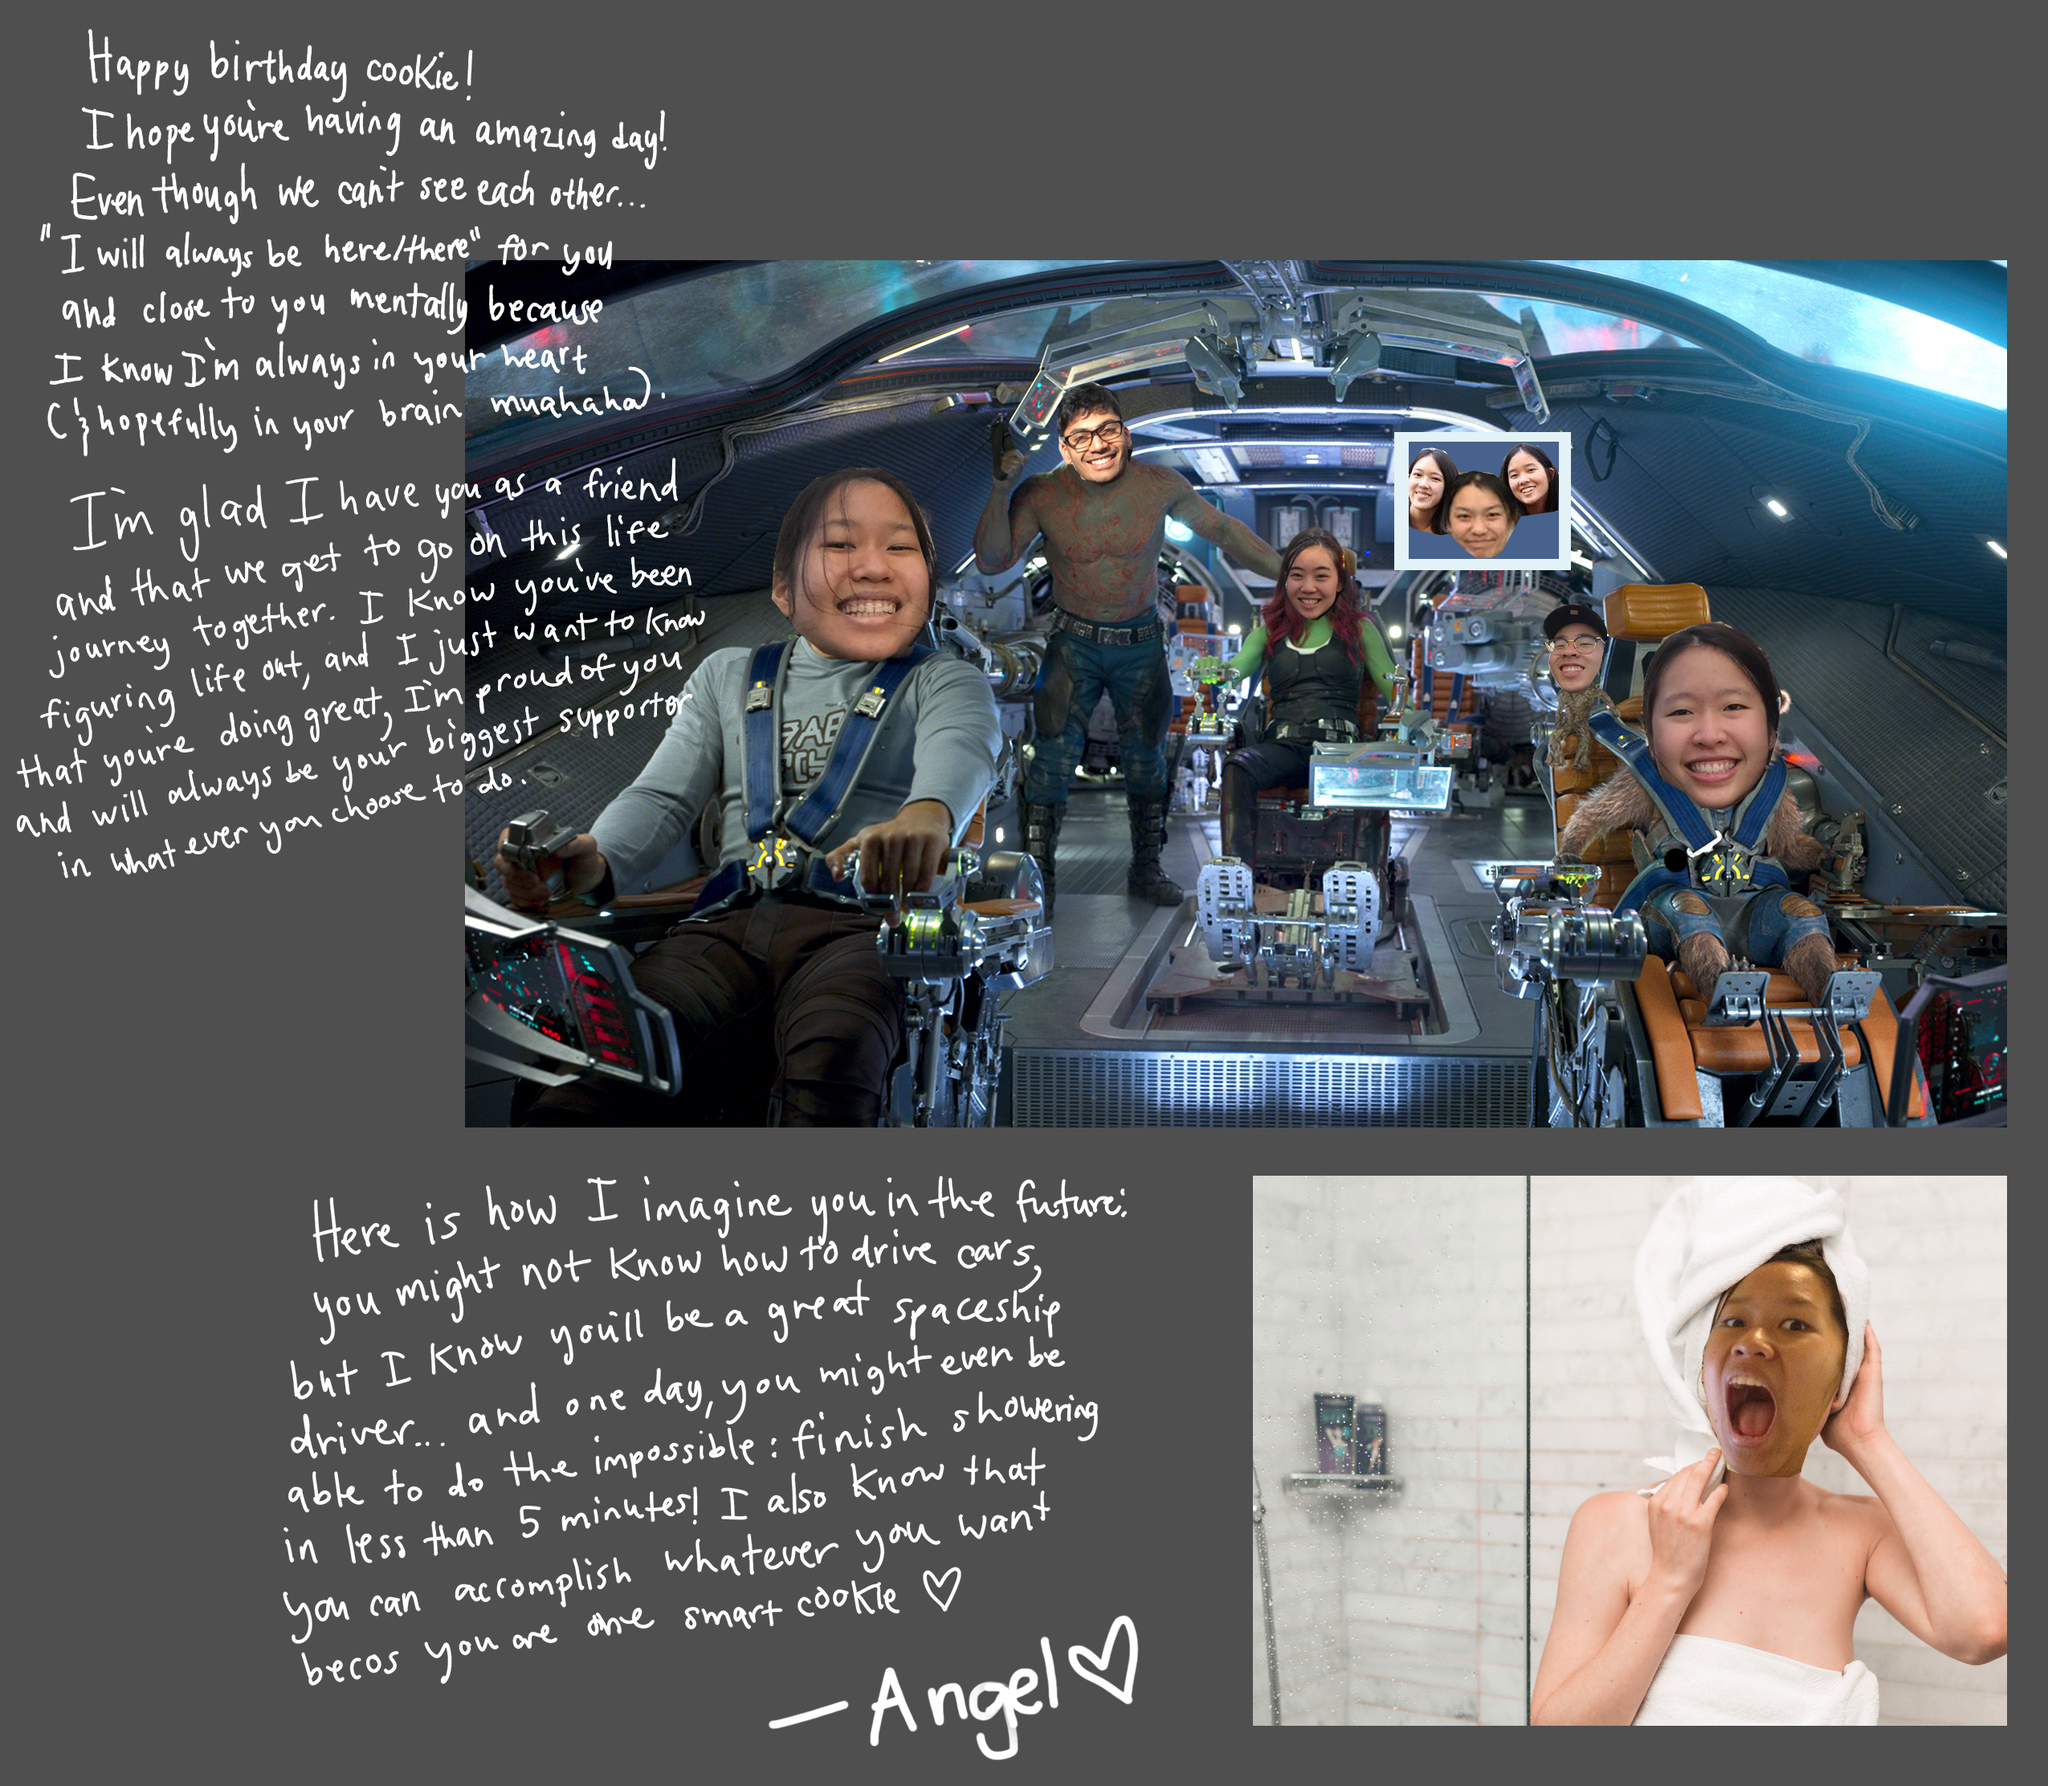 Happy birthday cookie!
I hope you're having an amazing day!
Even though we can't see each other...
"I will always be here/there" for you
and close to you mentally because
I know I'm always in your heart
(& hopefully in your brain muahaha).
I'm glad I have you as a friend
and that we get to go on this life
journey together. I know you've been
figuring life out, and I just want to know
that you're doing great, I'm proud of you
and will always be your biggest supporter
in whatever you choose to do.
Here is how I imagine you in the future:
you might not know how to drive cars,
but I know you'll be a great spaceship
driver... and one day, you might even be
able to do the impossible: finish showering
in less than 5 minutes! I also know that
you can accomplish whatever you want
becos you are one smart cookie ♡
—Angel♡